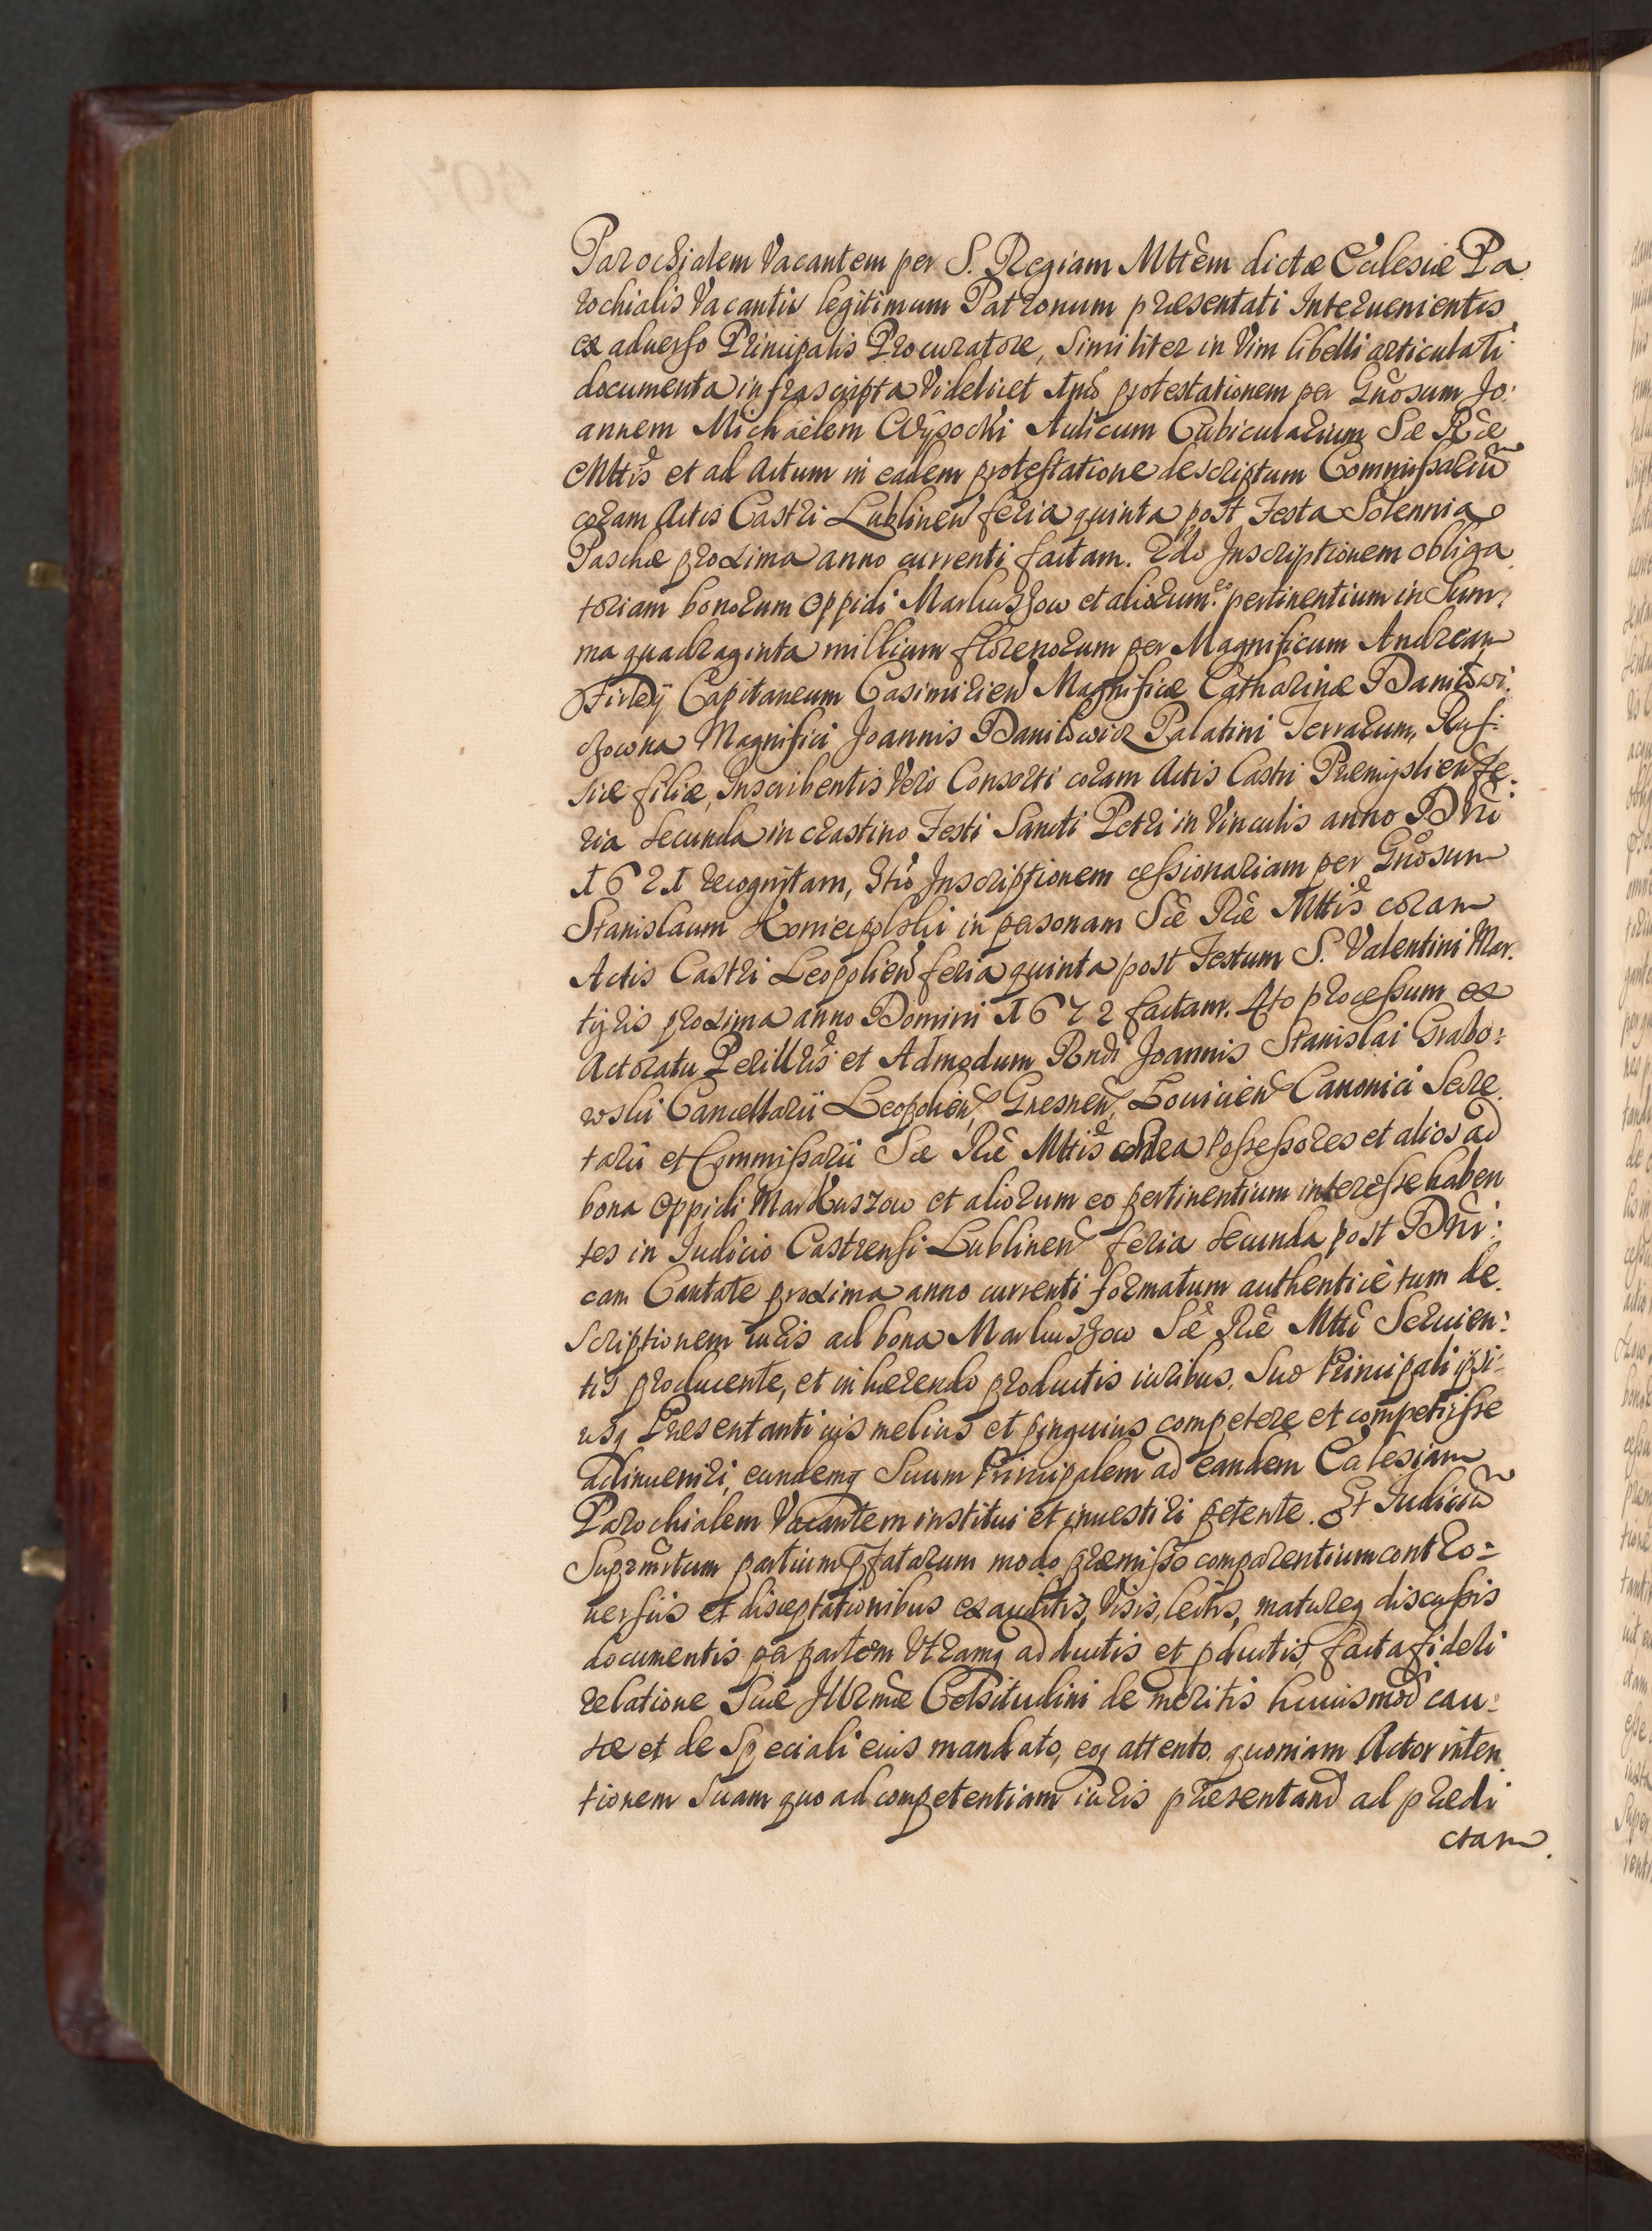 Parochialem Vacantem per S. Regiam Mttẽm dictæ Ecclesiæ Pa
rochialis Vacantis legitimum Patronum præsentati Interuenientis
ex aduerso Principalis Procuratore, Similiter in Vim libelli articulati
documenta infrascripta Videlicet 1mõ protestationem per Gnõsum Jo:
annem Michaëlem Wÿsocki Aulicum Cubicularium Sæ Ræ
Mttis et ad Actum in eadem protestatione descriptum Commissariũ
coram Actis Castri Lublinen feria quinta post Festa Solennia
Paschæ proxima anno currenti factam. 2do Inscriptionem obliga
toriam bonorum oppidi Markuszow et aliorum eo pertinentium in Sum:
ma quadraginta millium florenorum per Magnificum Andream
Firleÿ Capitaneum Casimirien Magnificæ Catharinæ Daniłowi:
czowna Magnifici Joannis Daniłowicz Palatini Terrarum, Rus:
siæ filiæ, Inscribentis Vero Consorti coram Actis Castri Præmyslien fe:
ria secunda in crastino Festi Sancti Petri in Vinculis anno Dñi
1621 recognitam, 3tiõ Inscriptionem cessionariam per Gnõsum
Stanislaum Koniecpolski in personam Sæ Ræ Mttis coram
Actis Castri Leopolien feria quinta post Festum S. Valentini Mar.
tÿris proxima anno Domini 1672 factam. 4to processum ex
Actoratu Perillris et Admodum Rndi Joannis Stanislai Grabo:
wski Cancellarii Leopolien, Gnesnen, Louicien Canonici Secre
tarii et Commissarii Sæ Ræ Mttis contra possessores et alios ad
bona oppidi Markuszow et aliorum eo pertinentium interesse haben
tes in Judicio Castrensi Lublinen feria secunda post Dñi:
cam Cantate proxima anno currenti formatum authenticè tum de
scriptionem iuris ad bona Markuszow Sæ Ræ Mtti Seruien:
tis producente, et inhærendo productis iuribus. Suo Principali ipsi:
usq Præsentanti ius melius et pinguius competere et competiisse
adinueniri, eundemq Suum Principalem ad eandem Ecclesiam
Parochialem Vacantem institui et inuestiri petente. Et Judiciũ
Suprãtum partium pfatarum modo præmisso comparentium contro:
uersiis et disceptationibus exauditis, Visis, lectis, matureq discussis
documentis per partem Vtramq adductis et pductis, facta fideli
relatione Suæ Illrmæ Celsitudini de meritis huiusmodi cau:
sæ et de Speciali eius mandato, eoq attento. quoniam Actor inten
tionem Suam quo ad competentiam iuris præsentand ad prædi
ctam.